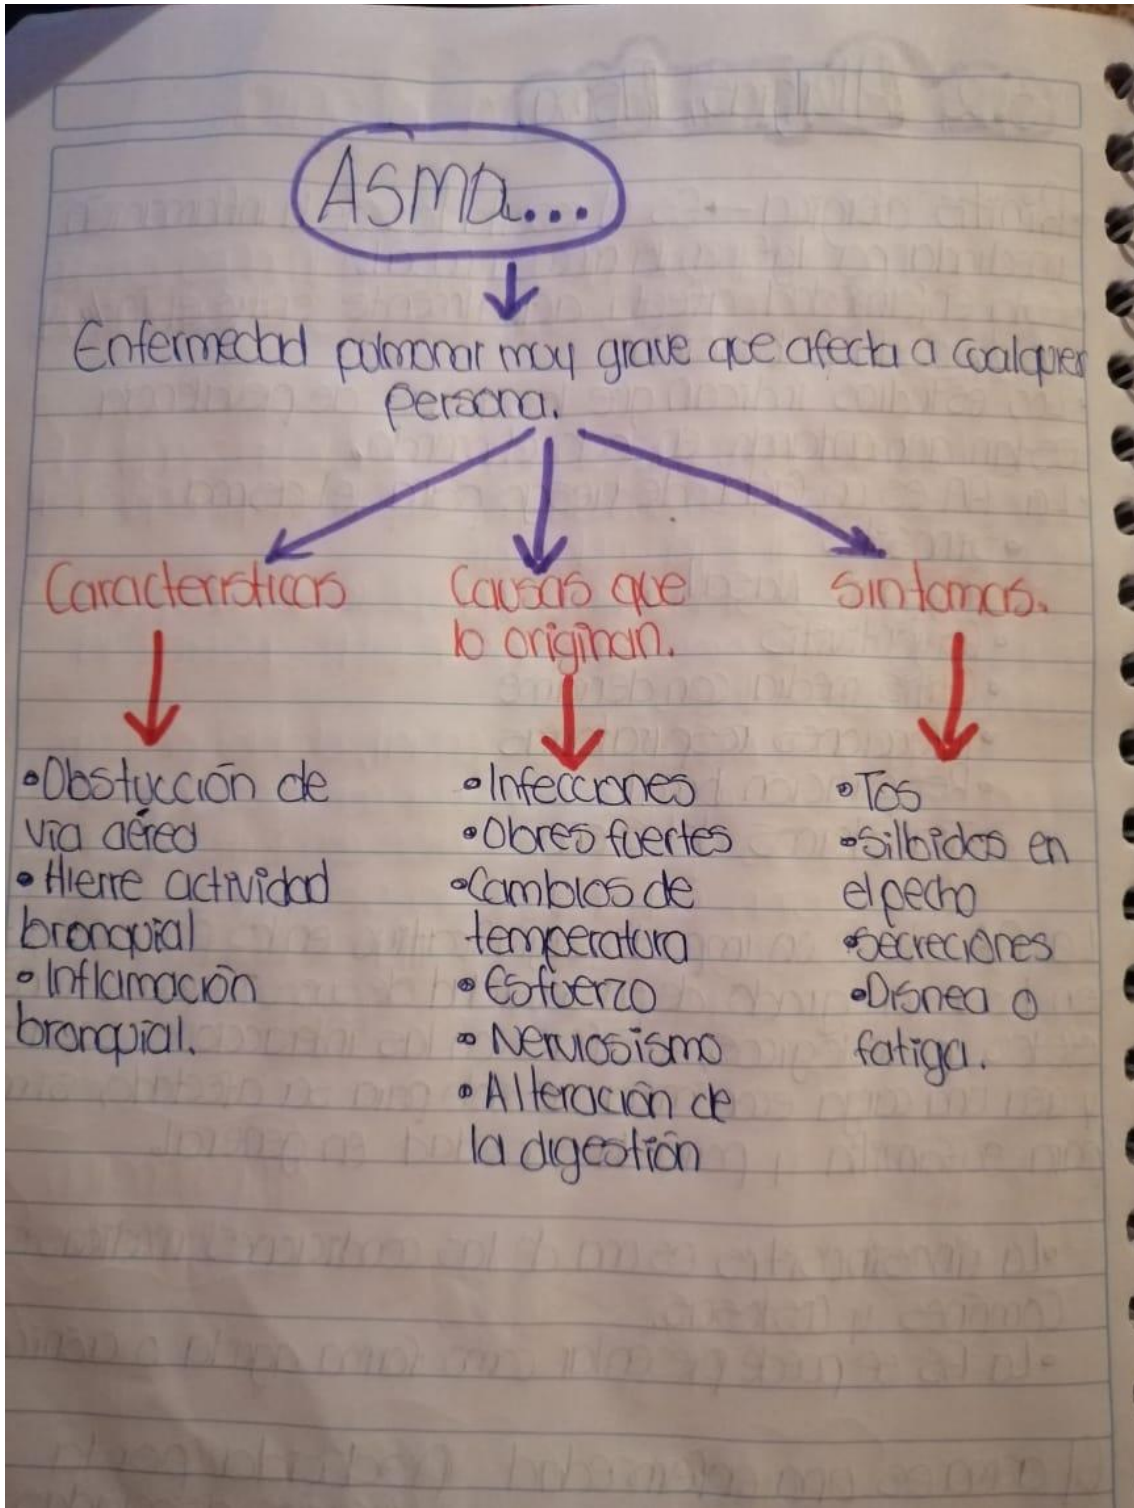 Asma...
Enfermedad pulmonar muy grave que afecta a cualquier
persona.
Características
Obstucción de
via aérea
Hierre actividad
bronquial
Inflamación
bronquial.
Causas que
lo originan.
Infecciones
Olores fuertes
Cambios de
temperatura
Esfuerzo
Nerviosismo
Alteración de
la digestión
Sintomas.
Tos
Silbidos en
el pecho
Secreciones
Disnea o
fatiga.